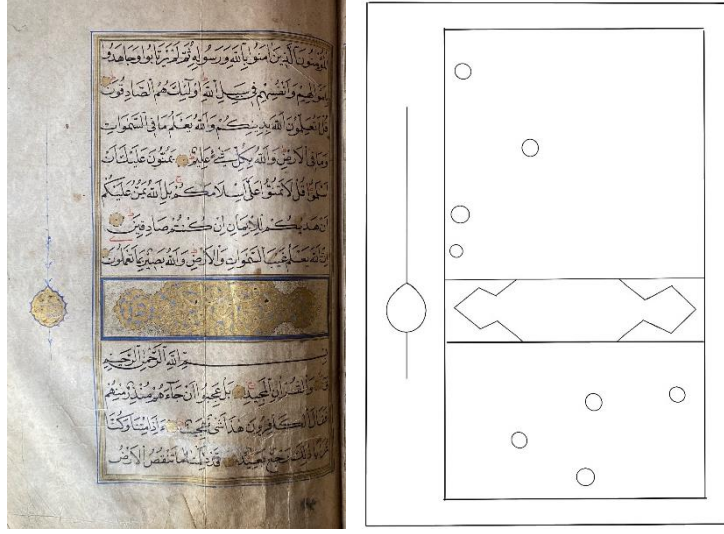 المؤمنون الذين امنوا بالله ورسوله ثم لم يرتابوا وجاهدوا
باموالهم وانفسهم في سبيل الله اولئك هم الصادقون
قل اتعلمون الله بدينكم والله يعلم ما في السموات
وما في الارض والله بكل شيء عليم يمنون عليك ان
اسلموا قل لا تمنوا على اسلامكم بل الله يمن عليكم
ان هديكم للايمان ان كنتم صادقين
ان الله يعلم غيب السموات والارض والله بصير بما تعملون
بسم الله الرحمن الرحيم
ق والقران المجيد بل عجبوا ان جاءهم منذر منهم
فقال الكافرون هذا شيء عجيب ءاذا متنا وكنا
ترابا ذلك رجع بعيد قد علمنا ما تنقص الارض